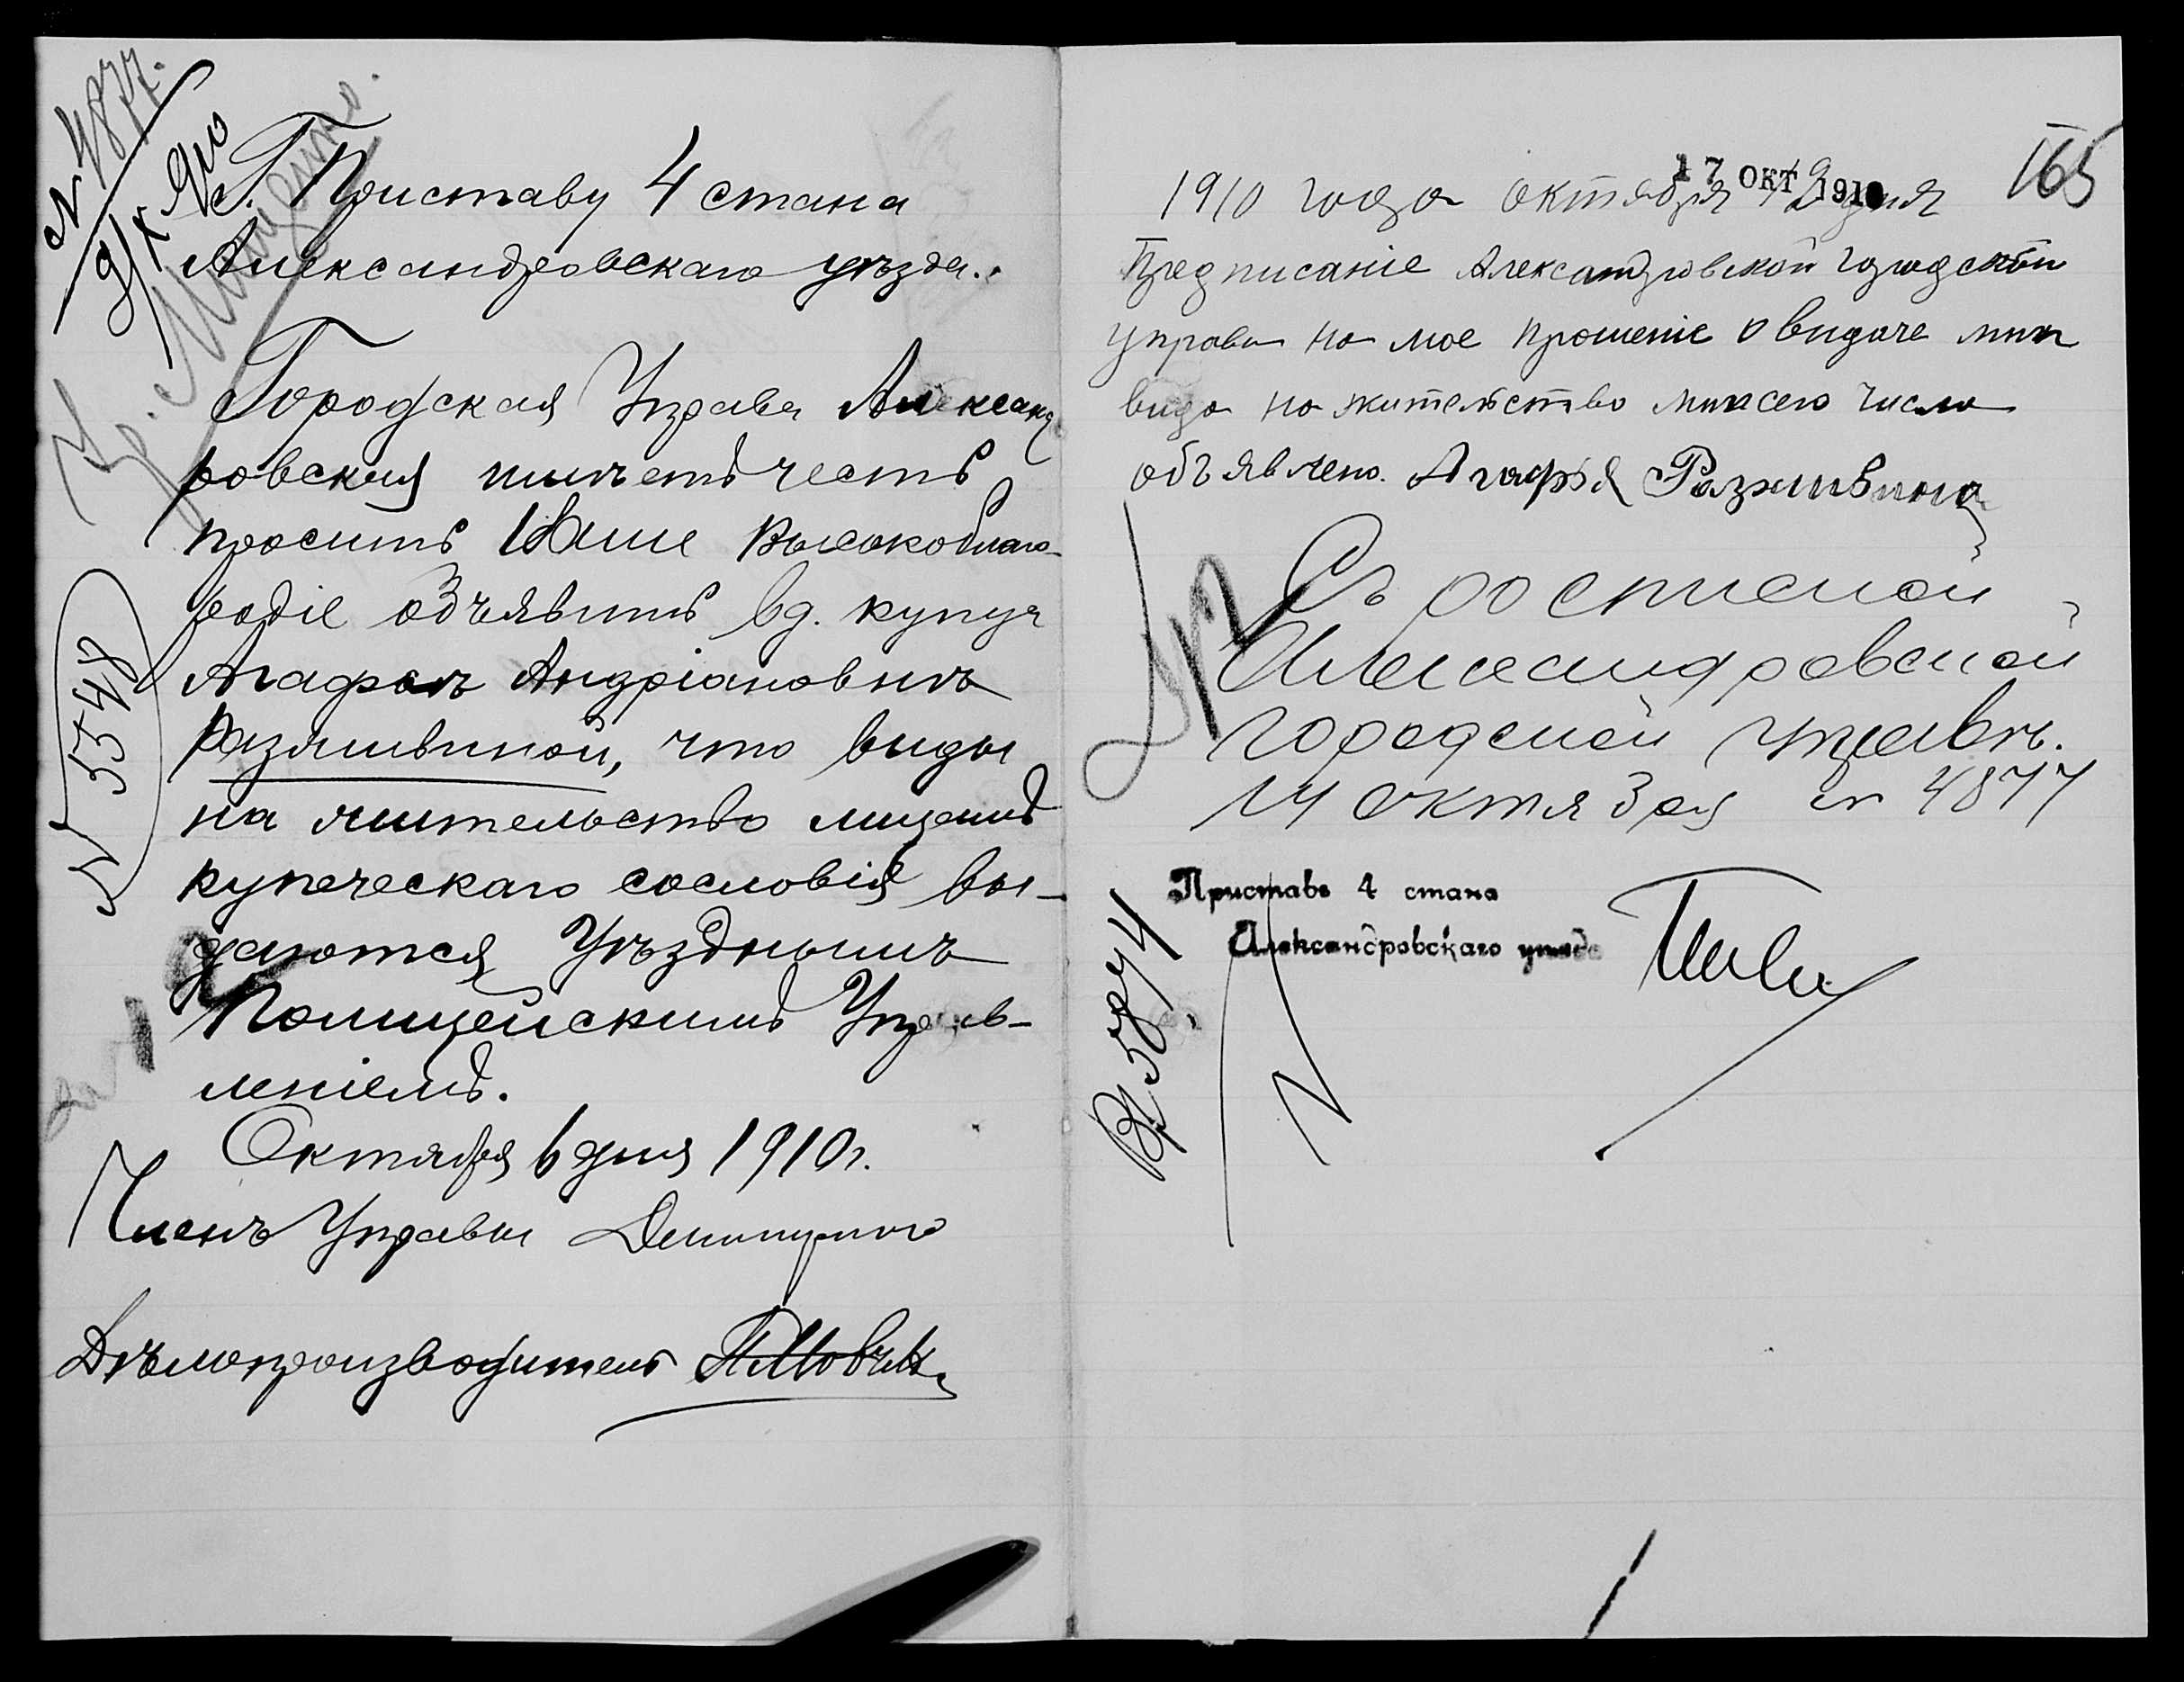 № 4877.
9/X 910
Г. Приставу 4 стана
Александровскаго уѣзда.
Городская Управа Александ
ровская имѣетъ честь
просить Ваше Высокоблаго-
родіе объявить вд. купца
Агафьѣ Андріановнѣ
Разживиной, что виды
на жительство лицамъ
купеческаго сословія вы-
даются Уѣзднымъ
Полицейскимъ Управ-
леніемъ.
Октября 6 дня 1910 г.
Членъ Управы
Дѣлопроизводитель
№ 5548
165
17 ОКТ 1910
1910 года октября 12 дня
Предписаніе Александровской городской
управы на мое прошеніе о видаче мнѣ
вида на жительство мнѣ сего числа
объявлено. Агафья Разживина
Съ роспиской
Александровской
городской управѣ.
14 октября № 4877
Приставъ 4 стана
Александровскаго уѣзда